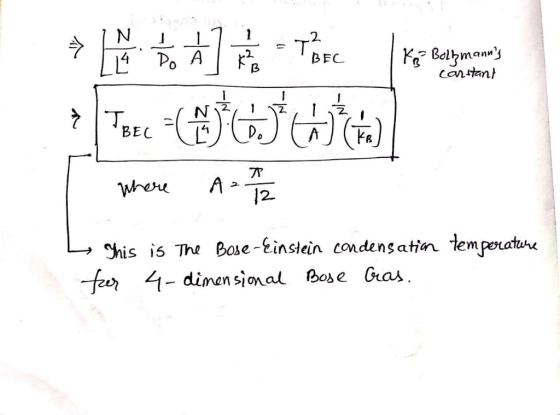 ⇒ [N/L⁴ · 1/D₀ 1/A] 1/K_B² = T²_BEC
K_B = Boltzmann's constant
⇒ T_BEC = (N/L⁴)^(1/2) · (1/D₀)^(1/2) (1/A)^(1/2) (1/K_B)
where A = π/12
→ This is The Bose-Einstein condensation temperature
for 4-dimensional Bose Gas.